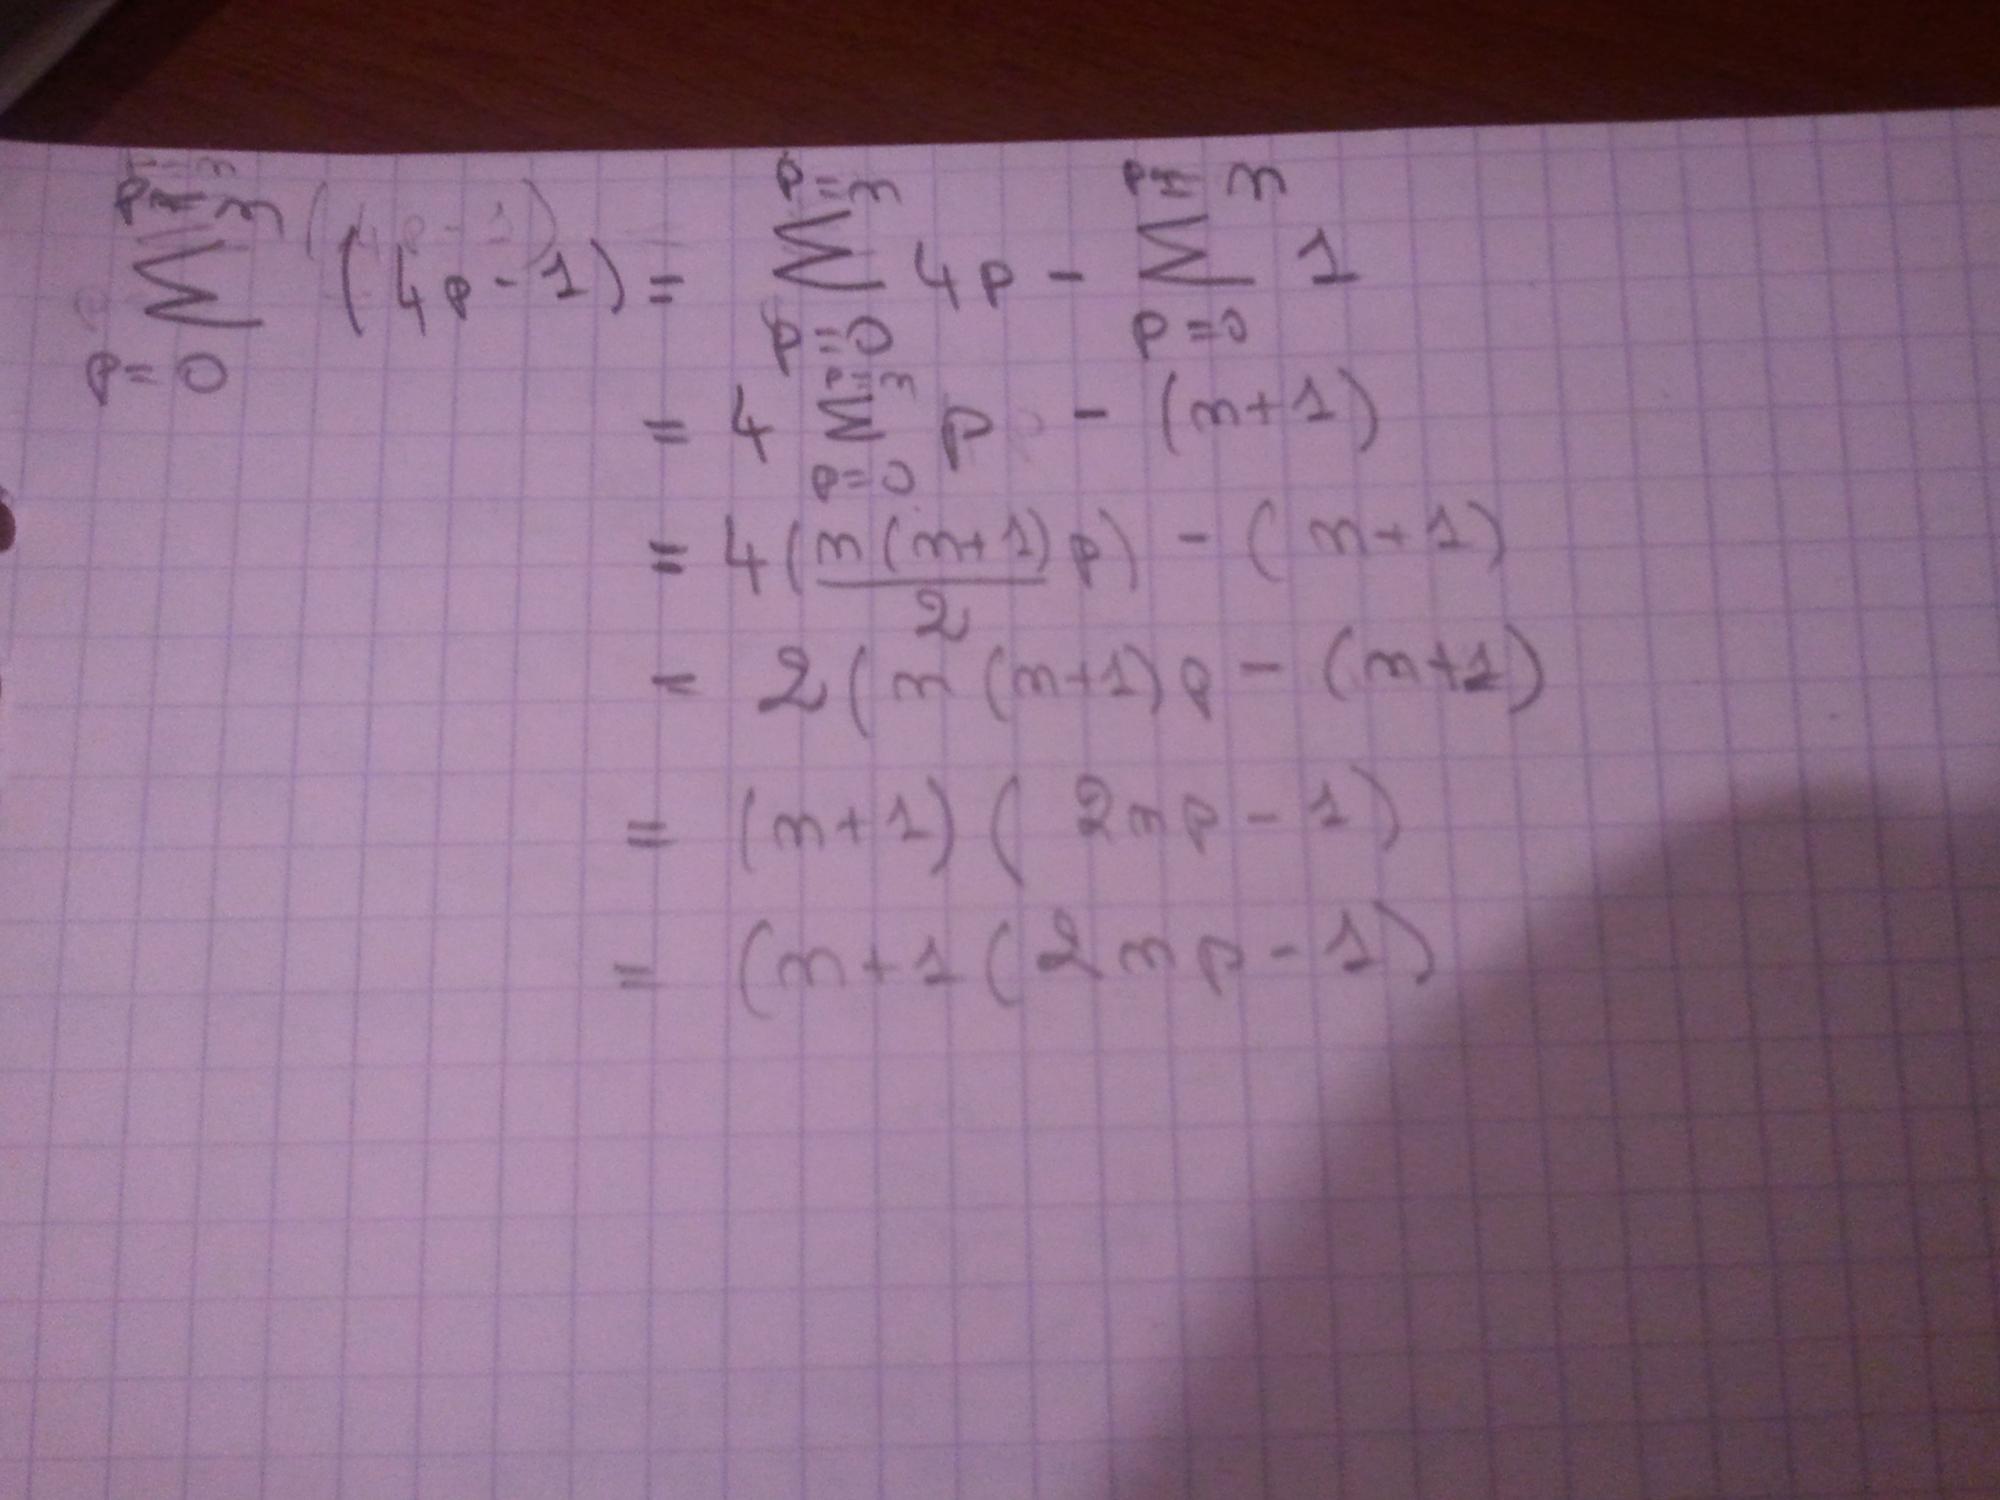 \sum_{p=0}^{p=n} (4p-1) = \sum_{p=0}^{p=n} 4p - \sum_{p=0}^{p=n} 1
= 4 \sum_{p=0}^{p=n} p - (n+1)
= 4 ( \frac{n(n+1)}{2} p) - (n+1)
= 2 ( n (n+1) p - (n+1)
= (n+1) ( 2np - 1)
= (n+1 ( 2np - 1)